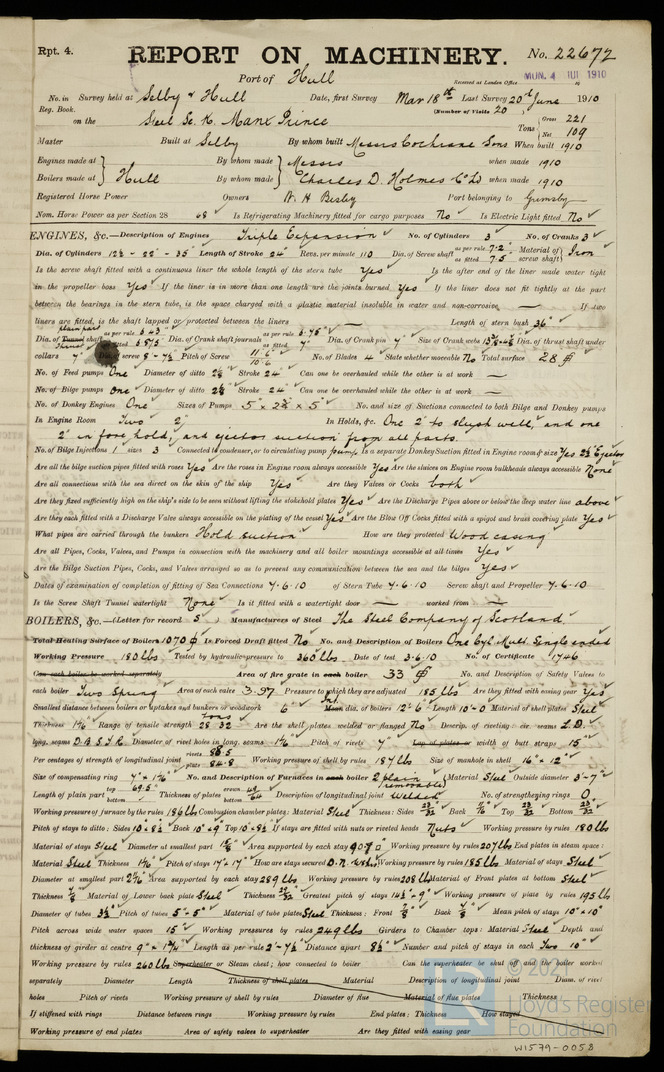 Rpt. 4. REPORT ON MACHINERY. No. 22672
Port of Hull
Received at London Office MON. 4 JUL 1910
No. in Survey held at Selby & Hull Date, first Survey Mar 18th Last Survey 20th June 1910
Reg. Book. (Number of Visits 20)
on the Steel Sc. K. Manx Prince Tons Gross 221 Net 109
Master Built at Selby By whom built Messrs Cochrane Sons When built 1910
Engines made at Hull By whom made Messrs when made 1910
Boilers made at By whom made Charles D. Holmes & Co Ld when made 1910
Registered Horse Power Owners Port belonging to Grimsby
Nom. Horse Power as per Section 28 68 Is Refrigerating Machinery fitted for cargo purposes No Is Electric Light fitted No
ENGINES, &c.—Description of Engines Triple Expansion No. of Cylinders 3 No. of Cranks 3
Dia. of Cylinders 12½ - 22 - 35" Length of Stroke 24" Revs. per minute 110 Dia. of Screw shaft as per rule 7.2" as fitted 7.5 Material of screw shaft Iron
Is the screw shaft fitted with a continuous liner the whole length of the stern tube Yes Is the after end of the liner made water tight
in the propeller boss Yes If the liner is in more than one length are the joints burned Yes If the liner does not fit tightly at the part
between the bearings in the stern tube, is the space charged with a plastic material insoluble in water and non-corrosive — If two
liners are fitted, is the shaft lapped or protected between the liners — Length of stern bush 36"
Dia. of Tunnel shaft as per rule 6.43 as fitted 6.875 Dia. of Crank shaft journals as per rule 6.75" as fitted 7" Dia. of Crank pin 7" Size of Crank webs Dia. of thrust shaft under
collars 7" Dia. of screw 8 - 7½ Pitch of Screw No. of Blades 4 State whether moveable No Total surface 28
No. of Feed pumps One Diameter of ditto 2½ Stroke 24" Can one be overhauled while the other is at work —
No. of Bilge pumps one Diameter of ditto 2½ Stroke 24" Can one be overhauled while the other is at work —
No. of Donkey Engines One Sizes of Pumps No. and size of Suctions connected to both Bilge and Donkey pumps
In Engine Room Two 2" In Holds, &c. One 2" to slush well, and one
2" in fore hold, and ejector suction from all parts.
No. of Bilge Injections 1 sizes 3 Connected to condenser, or to circulating pump pump Is a separate Donkey Suction fitted in Engine room & size Yes 2½ Ejector
Are all the bilge suction pipes fitted with roses Yes Are the roses in Engine room always accessible Yes Are the sluices on Engine room bulkheads always accessible None
Are all connections with the sea direct on the skin of the ship Yes Are they Valves or Cocks both
Are they fixed sufficiently high on the ship's side to be seen without lifting the stokehold plates Yes Are the Discharge Pipes above or below the deep water line above
Are they each fitted with a Discharge Valve always accessible on the plating of the vessel Yes Are the Blow Off Cocks fitted with a spigot and brass covering plate Yes
What pipes are carried through the bunkers Hold suction How are they protected Wood casing
Are all Pipes, Cocks, Valves, and Pumps in connection with the machinery and all boiler mountings accessible at all times Yes
Are the Bilge Suction Pipes, Cocks, and Valves arranged so as to prevent any communication between the sea and the bilges Yes
Dates of examination of completion of fitting of Sea Connections 7.6.10 of Stern Tube 7.6.10 Screw shaft and Propeller 7.6.10
Is the Screw Shaft Tunnel watertight None Is it fitted with a watertight door — worked from —
BOILERS, &c.—(Letter for record S) Manufacturers of Steel The Steel Company of Scotland
Total Heating Surface of Boilers 1070 Is Forced Draft fitted No No. and Description of Boilers One Cyl. Mult. Single ended
Working Pressure 180 lbs Tested by hydraulic pressure to 360 lbs Date of test 3.6.10 No. of Certificate 1746
Can each boiler be worked separately Area of fire grate in each boiler 33 No. and Description of Safety Valves to
each boiler Two Spring Area of each valve 3.97 Pressure to which they are adjusted 185 lbs Are they fitted with easing gear Yes
Smallest distance between boilers or uptakes and bunkers or woodwork 6" Mean dia. of boilers 12'-6" Length 10'-0 Material of shell plates Steel
Thickness Range of tensile strength 28.32 tons Are the shell plates welded or flanged No Descrip. of riveting: cir. seams L.D.
long. seams D.B.S.T.R. Diameter of rivet holes in long. seams Pitch of rivets 7" Lap of plates or width of butt straps 15"
Per centages of strength of longitudinal joint rivets 88.5 plate 84.8 Working pressure of shell by rules 187 lbs Size of manhole in shell 16" × 12"
Size of compensating ring No. and Description of Furnaces in each boiler 2 plain Material Steel Outside diameter 3'-7"
Length of plain part top 69.5" bottom Thickness of plates crown bottom Description of longitudinal joint welded No. of strengthening rings 0
Working pressure of furnace by the rules 186 lbs Combustion chamber plates: Material Steel Thickness: Sides 23/32 Back 11/16 Top 23/32 Bottom 23/32
Pitch of stays to ditto: Sides 10 × 8½ Back 10" × 9 Top 10 × 8½ If stays are fitted with nuts or riveted heads Nuts Working pressure by rules 180 lbs
Material of stays Steel Diameter at smallest part Area supported by each stay 90 Working pressure by rules 207 lbs End plates in steam space:
Material Steel Thickness Pitch of stays 17" × 17" How are stays secured D.N. Working pressure by rules 185 lbs Material of stays Steel
Diameter at smallest part Area supported by each stay 289 Working pressure by rules 208 lbs Material of Front plates at bottom Steel
Thickness Material of Lower back plate Steel Thickness Greatest pitch of stays 14½ × 9" Working pressure of plate by rules 195 lbs
Diameter of tubes 3½ Pitch of tubes 5" × 5" Material of tube plates Steel Thickness: Front Back Mean pitch of stays 10" × 10"
Pitch across wide water spaces 15" Working pressures by rules 249 lbs Girders to Chamber tops: Material Steel Depth and
thickness of girder at centre 9" × 1¾ Length as per rule 2'-7½ Distance apart 8½ Number and pitch of stays in each Two 10"
Working pressure by rules 260 lbs Superheater or Steam chest; how connected to boiler Can the superheater be shut off and the boiler worked
separately Diameter Length Thickness of shell plates Material Description of longitudinal joint Diam. of rivet
holes Pitch of rivets Working pressure of shell by rules Diameter of flue Material of flue plates Thickness
If stiffened with rings Distance between rings Working pressure by rules End plates: Thickness How stayed
Working pressure of end plates Area of safety valves to superheater Are they fitted with easing gear
© 2021
Lloyd's Register
Foundation
W1579-0058